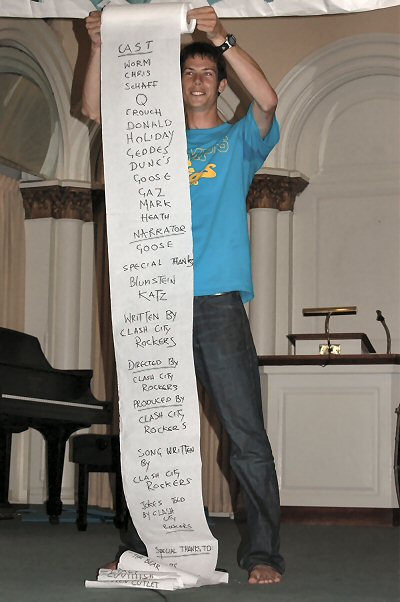 SPECIAL THANKS TO
CAST
WORM
CHRIS
SCHAFF
Q
CROUCH
DONALD
HOLIDAY
GEDDES
DUNC'S
GOOSE
GAZ
MARK
HEATH
NARRATOR
GOOSE
SPECIAL THANKS
BLUMSTEIN
KATZ
WRITTEN BY
CLASH CITY
ROCKERS
DIRECTED BY
CLASH CITY
ROCKERS
PRODUCED BY
CLASH CITY
ROCKERS
SONG WRITTEN
BY
CLASH CITY
ROCKERS
JOKES TOLD
BY CLASH
CITY
ROCKERS
SPECIAL THANKS TO
BEAR
CUTLET